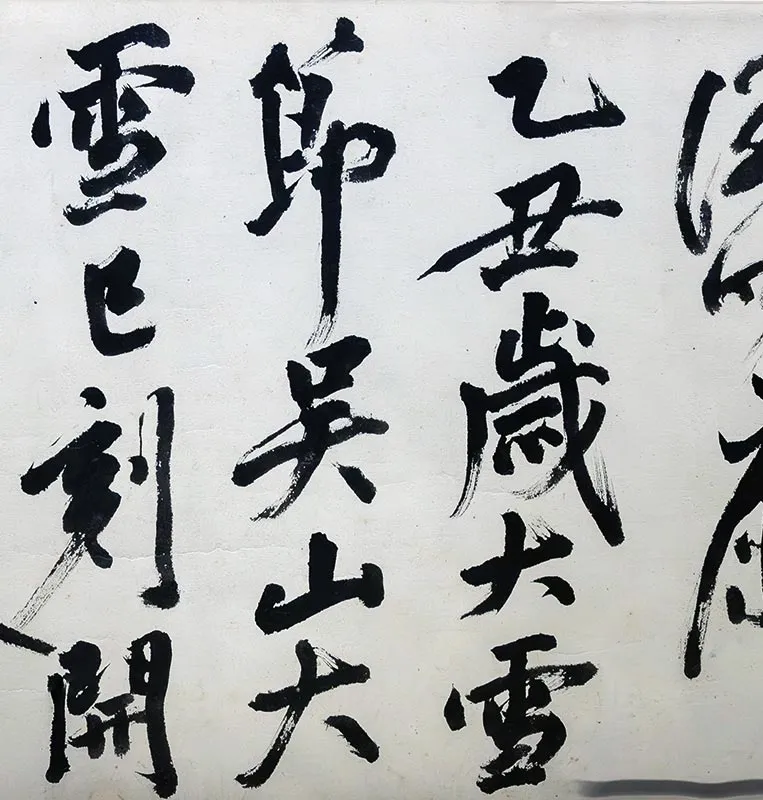 乙丑歲大雪
節吳山大
雪巳刻開